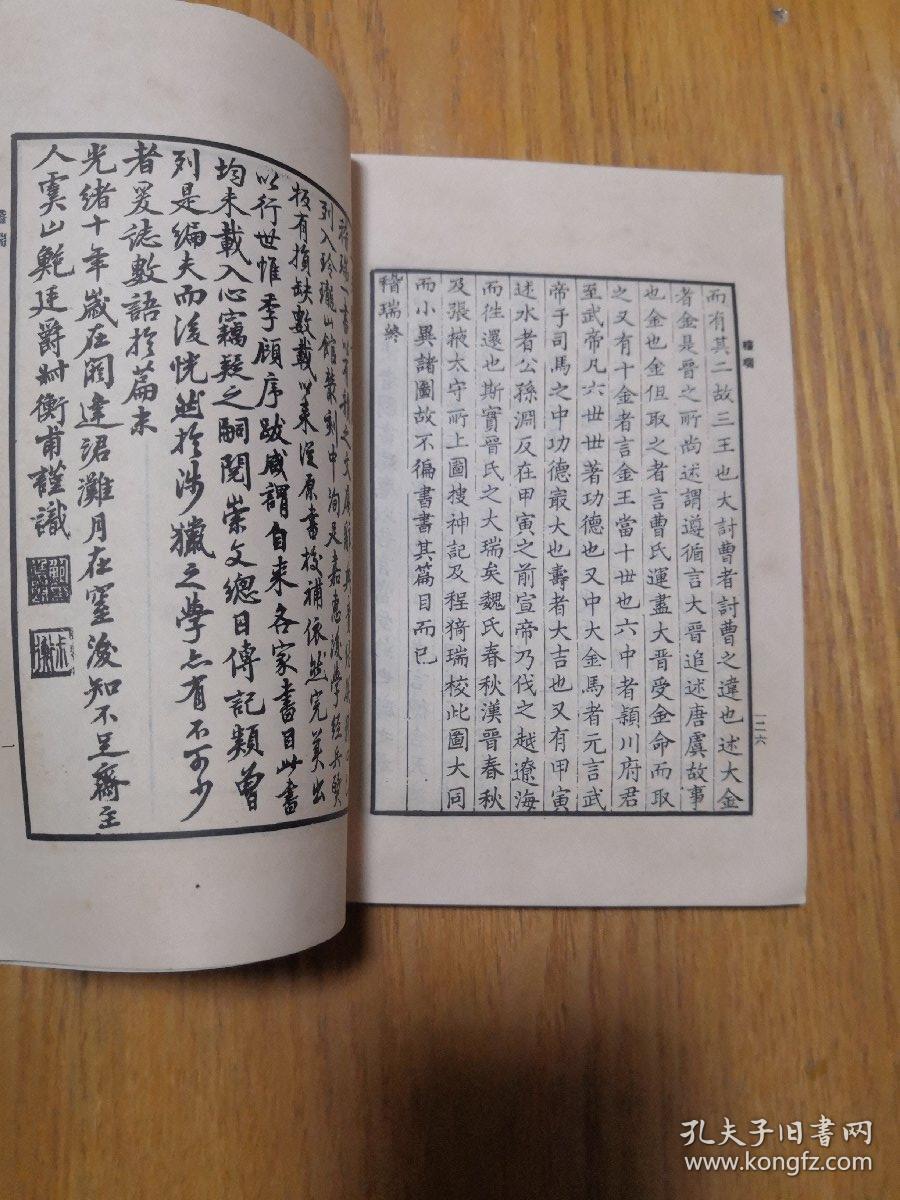 稽瑞
一二六
而有其二故三王也大討曹者討曹之違也述大金
者金是晉之所尚述謂遵循言大晉追述唐虞故事
也金也金但取之者言曹氏運盡大晉受金命而取
之又有十金者言金王當十世也六中者潁川府君
至武帝凡六世世著功德也又中大金馬者元言武
帝于司馬之中功德最大也壽者大吉也又有甲寅
述水者公孫淵反在甲寅之前宣帝乃伐之越遼海
而徃還也斯實晉氏之大瑞矣魏氏春秋漢晉春秋
及張掖太守所上圖搜神記及程猗瑞校此圖大同
而小異諸圖故不徧書書其篇目而已
稽瑞終
列入玲瓏山館叢刻中洵足嘉惠後學經兵燹
板有損缺數載以來後原書校補依然完美出
以行世惟季顧序跋咸謂自来各家書目此書
均未載入心竊疑之嗣閱崇文總目傳記類曾
列是編夫而後恍然於涉獵之學亦有不可少
者爰誌數語於篇末
光緒十年歲在閼逢涒灘月在窒後知不足齋主
人虞山鮑廷爵叔衡甫謹識
稽瑞
一
孔夫子旧书网
www.kongfz.com